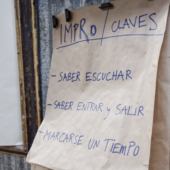 IMPRO / CLAVES
- SABER ESCUCHAR
- SABER ENTRAR Y SALIR
- MARCARSE UN TIEMPO